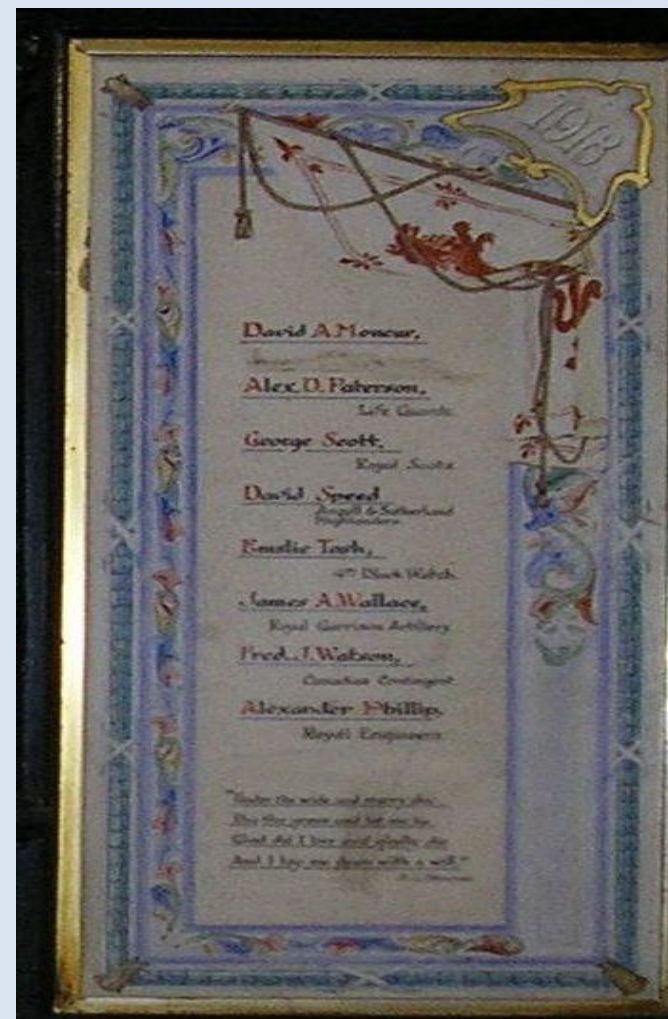 1918
David A. Moncur,
Alex. D. Paterson,
Life Guards.
George Scott,
Royal Scots
David Speed
Argyll & Sutherland
Highlanders.
Emslie Tosh,
4th Black Watch.
James A. Wallace,
Royal Garrison Artillery
Fred. J. Watson,
Canadian Contingent
Alexander Phillip,
Royal Engineers
"Under the wide and starry sky
Dig the grave and let me lie
Glad did I live and gladly die
And I lay me down with a will."